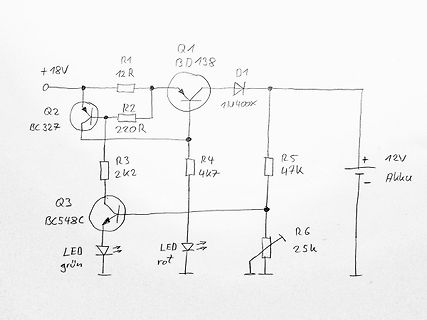 Q1
BD138
R1
12R
D1
1N400x
+18V
Q2
BC327
R2
220R
R3
2k2
R4
4k7
R5
47K
+
12V
Akku
-
Q3
BC548C
R6
25k
LED
grün
LED
rot